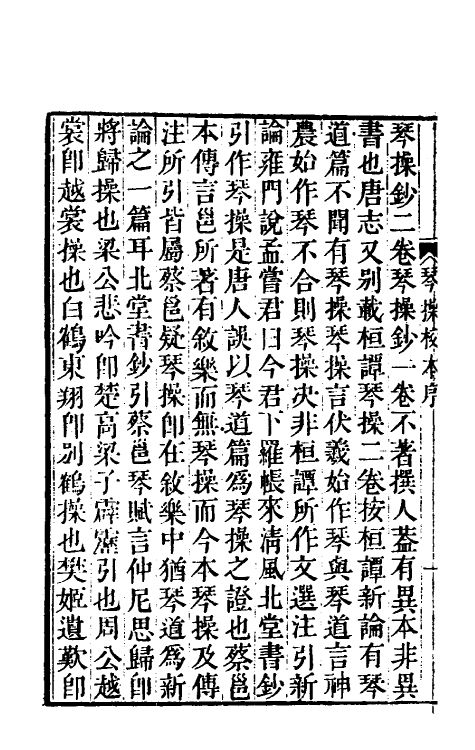 琴操校本序
一
琴操鈔二卷琴操鈔一卷不著撰人葢有異本非異
書也唐志又別載桓譚琴操二卷按桓譚新論有琴
道篇不聞有琴操琴操言伏羲始作琴與琴道言神
農始作琴不合則琴操决非桓譚所作文選注引新
論雍門說孟嘗君曰今君下羅帳來清風北堂書鈔
引作琴操是唐人誤以琴道篇為琴操之證也蔡邕
本傳言邕所著有敘樂而無琴操而今本琴操及傳
注所引皆屬蔡邕疑琴操即在敘樂中猶琴道為新
論之一篇耳北堂書鈔引蔡邕琴賦言仲尼思歸即
將歸操也梁公悲吟即楚高梁子霹靂引也周公越
裳即越裳操也白鶴東翔即別鶴操也樊姬遺歎即